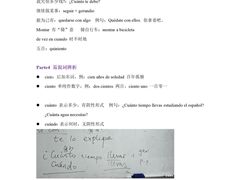 我欠你多少钱?: ¿Cuánto te debo?
继续做某事: seguir + gerundio
据为己有: quedarse con algo 例句: Quédate con ellos. 你拿着吧。
Montar 有“骑”意 骑自行车: montar a bicicleta
de vez en cuando 时不时地
五点: quiniento
Parte4 易混词辨析
cien: 后加名词, 例: cien años de soledad 百年孤独
ciento 单纯作数字, 例: dos cientos 两百; ciento uno 一百零一
cuánto 表示多少, 有阴性形式 例句: ¿Cuánto tiempo llevas estudiando el español?
¿Cuánta agua necesitas?
cuándo 表示何时, 无阴性形式
te lo explique
¿Cuánto tiempo llevar + ger
cuándo